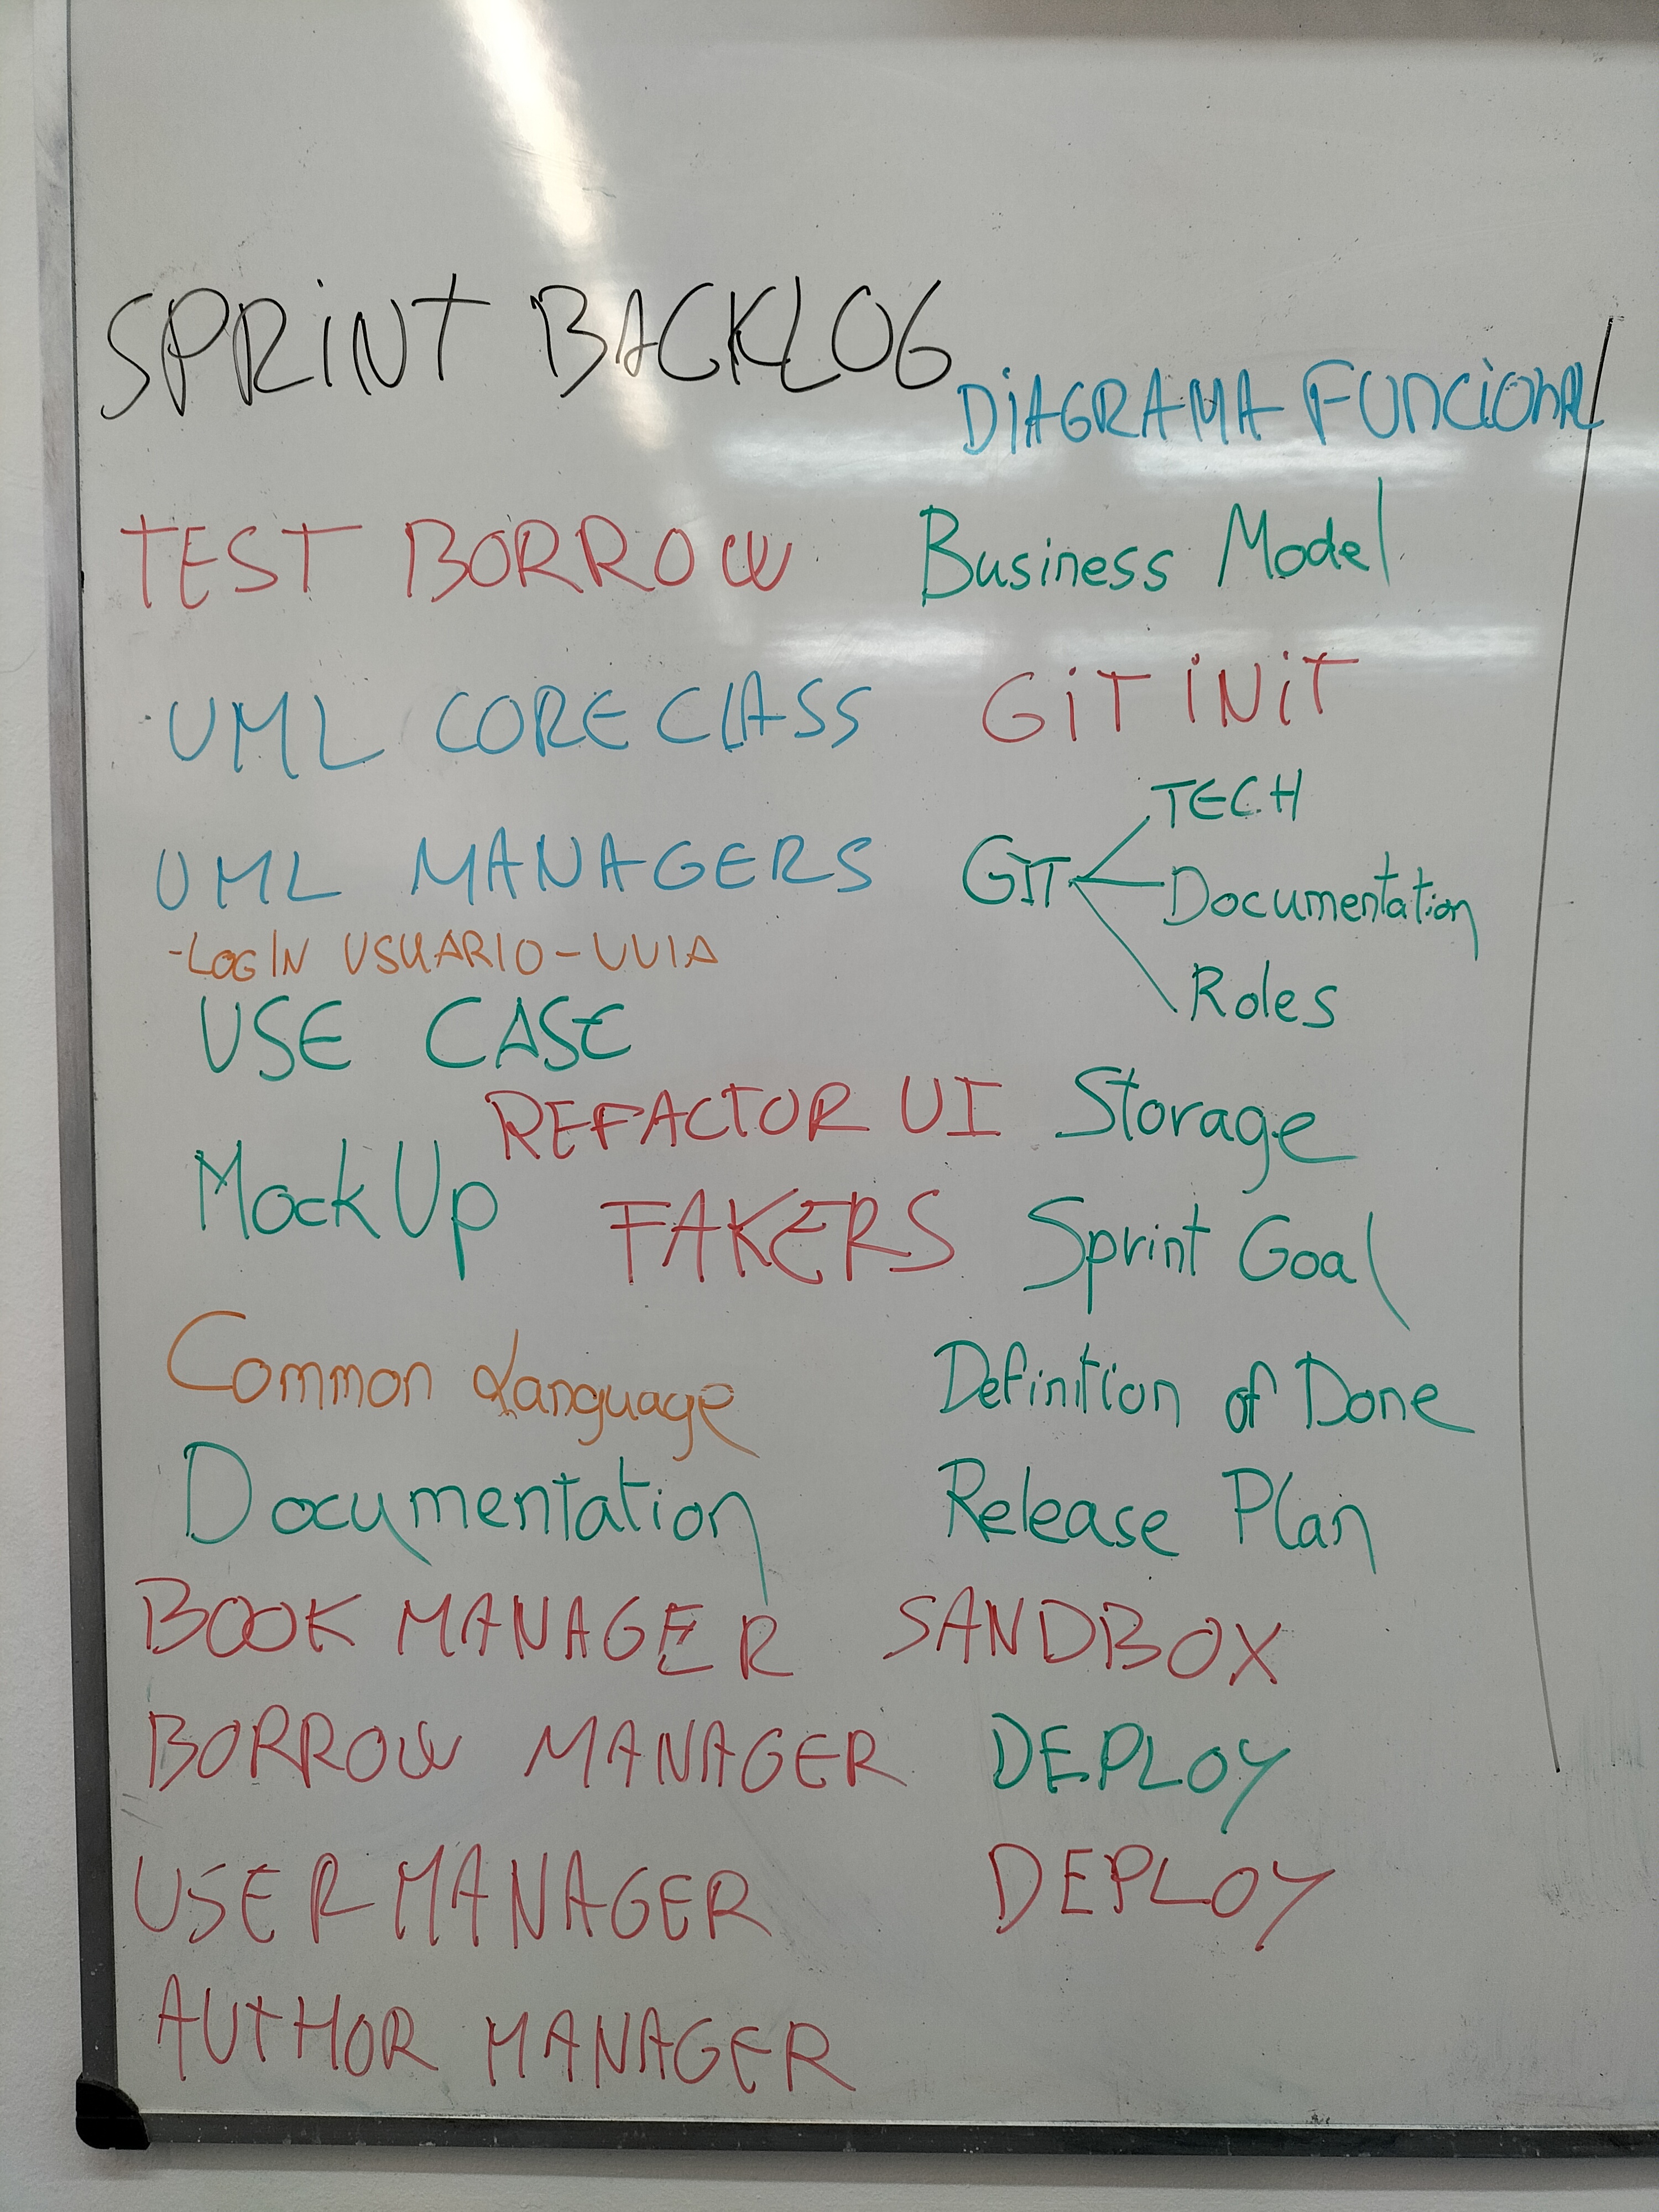 SPRINT BACKLOG
DIAGRAMA FUNCIONAL
TEST BORROW
Business Model
UML CORE CLASS
GIT INIT
UML MANAGERS
GIT
TECH
Documentation
Roles
-LOGIN USUARIO-
USE CASE
REFACTOR UI
Storage
MockUp
FAKERS
Sprint Goal
Common Language
Definition of Done
Documentation
Release Plan
BOOK MANAGER
SANDBOX
BORROW MANAGER
DEPLOY
USER MANAGER
DEPLOY
AUTHOR MANAGER